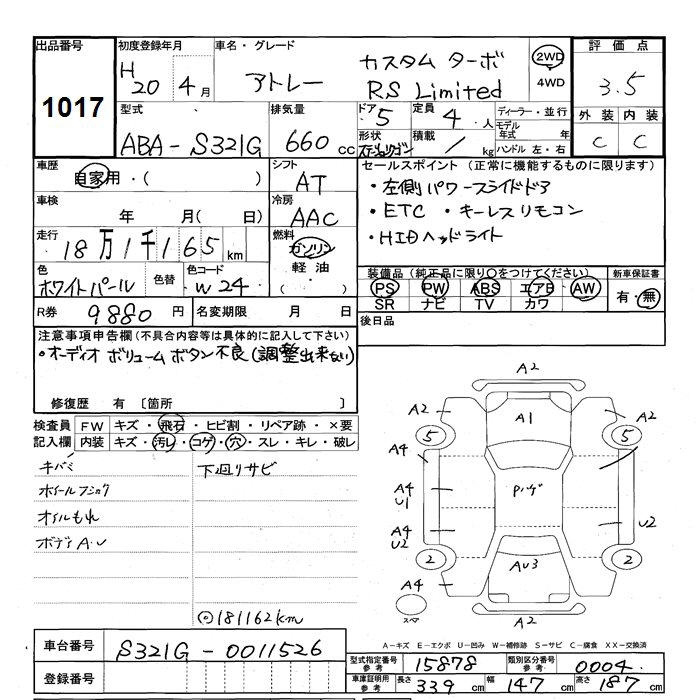 出品番号
1017
初度登録年月
H20 4月
車名・グレード
アトレー
カスタム ターボ
RS Limited
2WD
4WD
評価点
3.5
外装 内装
C C
型式
ABA-S321G
排気量
660 cc
ドア 5
定員 4 人
形状
積載 / kg
ディーラー・並行
モデル年式 年
ハンドル 左・右
車歴
自家用・( )
シフト
AT
車検
年 月( 日)
冷房
AAC
走行
18万1千165km
燃料
ガソリン
軽油
( )
色
ホワイトパール
色替
色コード
W24
R券 9880円
名変期限 月 日
セールスポイント(正常に機能するものに限ります)
・左側パワースライドドア
・ETC ・キーレスリモコン
・HIDヘッドライト
装備品(純正品に限り○をつけてください)
PS PW ABS エアB AW
SR ナビ TV カワ
新車保証書
有・無
後日品
注意事項申告欄(不具合内容等は具体的に記入して下さい)
・オーディオ ボリュームボタン不良(調整出来ない)
修復歴 有 〔箇所 〕
検査員記入欄
FW キズ・飛石・ヒビ割・リペア跡・×要
内装 キズ・汚レ・コゲ・穴・スレ・キレ・破レ
キバミ
下廻リサビ
オイルもれ
ボディA.U
◎181162km
A2
A2 A1 A2
5 5
A4
A4
U1
A4
U2
U2
2 2
AU3
A4
A2
スペア
A-キズ E-エクボ U-凹み W-補修跡 S-サビ C-腐食 XX-交換済
車台番号
S321G-0011526
登録番号
型式指定番号 参考
15878
類別区分番号 参考
0004
車庫証明用 参考
長さ 339 cm
幅 147 cm
高さ 187 cm